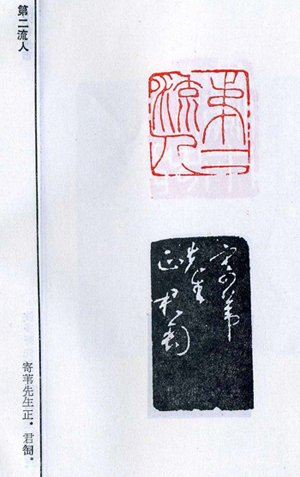 第二流人
第二
流人
寄苇
先生
正君匋
寄苇先生正。君匋。